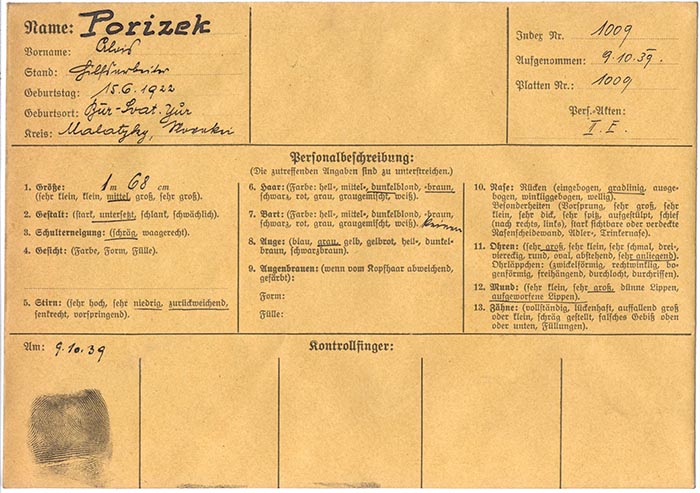 Name: Porizek
Vorname: Alois
Stand: Hilfsarbeiter
Geburtstag: 15.6.1922
Geburtsort: Bur-Svat. Jur
Kreis: Malatzky,
Index Nr. 1009
Aufgenommen: 9.10.39.
Platten Nr.: 1009
Pers.-Akten:
I. E.
Personalbeschreibung:
(Die zutreffenden Angaben sind zu unterstreichen.)
1. Größe: 1 m 68 cm
(sehr klein, klein, mittel, groß, sehr groß).
2. Gestalt: (stark, untersetzt, schlank, schwächlich).
3. Schulterneigung: (schräg, waagerecht).
4. Gesicht: (Farbe, Form, Fülle).
5. Stirn: (sehr hoch, sehr niedrig, zurückweichend,
senkrecht, vorspringend).
6. Haar: (Farbe: hell-, mittel-, dunkelblond, -braun,
schwarz, rot, grau, graugemischt, weiß).
7. Bart: (Farbe: hell-, mittel-, dunkelblond, -braun,
schwarz, rot, grau, graugemischt, weiß).
8. Auge: (blau, grau, gelb, gelbrot, hell-, dunkel-
braun, schwarzbraun).
9. Augenbrauen: (wenn vom Kopfhaar abweichend,
gefärbt):
Form:
Fülle:
10. Nase: Rücken (eingebogen, gradlinig, ausge-
bogen, winkliggebogen, wellig).
Besonderheiten (Vorsprung, sehr groß, sehr
klein, sehr dick, sehr spitz, aufgestülpt, schief
(nach rechts, links), stark sichtbare oder verdeckte
Nasenscheidewand, Adler-, Trinkernase).
11. Ohren: (sehr groß, sehr klein, sehr schmal, drei-,
viereckig, rund, oval, abstehend, sehr anliegend).
Ohrläppchen: (zwickelförmig, rechtwinklig, bo-
genförmig, freihängend, durchlocht, durchrissen).
12. Mund: (sehr klein, sehr groß, dünne Lippen,
aufgeworfene Lippen).
13. Zähne: (vollständig, lückenhaft, auffallend groß
oder klein, schräg gestellt, falsches Gebiß oben
oder unten, Füllungen).
Am: 9.10.39
Kontrollfinger: